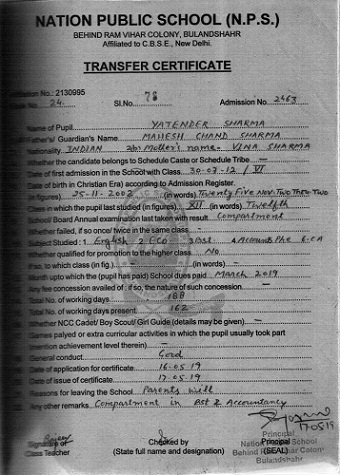 NATION PUBLIC SCHOOL (N.P.S.)
BEHIND RAM VIHAR COLONY, BULANDSHAHR
Affiliated to C.B.S.E., New Delhi.
TRANSFER CERTIFICATE
No.: 2130995
No. 24. Sl.No. 78 Admission No. 2463
Name of Pupil YATENDER SHARMA
Father's/ Guardian's Name MAHESH CHAND SHARMA
Nationality INDIAN Mother's name- VINA SHARMA
Whether the candidate belongs to Schedule Caste or Schedule Tribe —
Date of first admission in the School with Class 30-07-12 / VI
Date of birth in Christian Era) according to Admission Register.
(in figures) 25-11-2002 (in words) Twenty Five Nov-Two Thou-Two
Class in which the pupil last studied (in figures) XII (in words) Twelfth
School Board Annual examination last taken with result Compartment
Whether failed, if so once/ twice in the same class —
Subject Studied : 1 English 2 ECO 3 Bst 4 Accounts Phe 6-CA
Whether qualified for promotion to the higher class No
If so, to which class (in fig.) — (in words) —
Month upto which the (pupil has paid) School dues paid March 2019
Any fee concession availed : if so, the nature of such concession —
Total No. of working days 188
Total No. of working days present 162
Whether NCC Cadet/ Boy Scout/ Girl Guide (details may be given) —
Games palyed or extra curricular activities in which the pupil usually took part
(mention achievement level therein) —
General conduct Good
Date of application for certificate 16-05-19
Date of issue of certificate 17-05-19
Reasons for leaving the School Parents will
Any other remarks Compartment in Bst & Accountancy
17-05-19
Signature of Checked by Principal
Class Teacher (State full name and designation) (SEAL)
Principal
Nation School
Behind Ram Vihar Colony
Bulandshahr